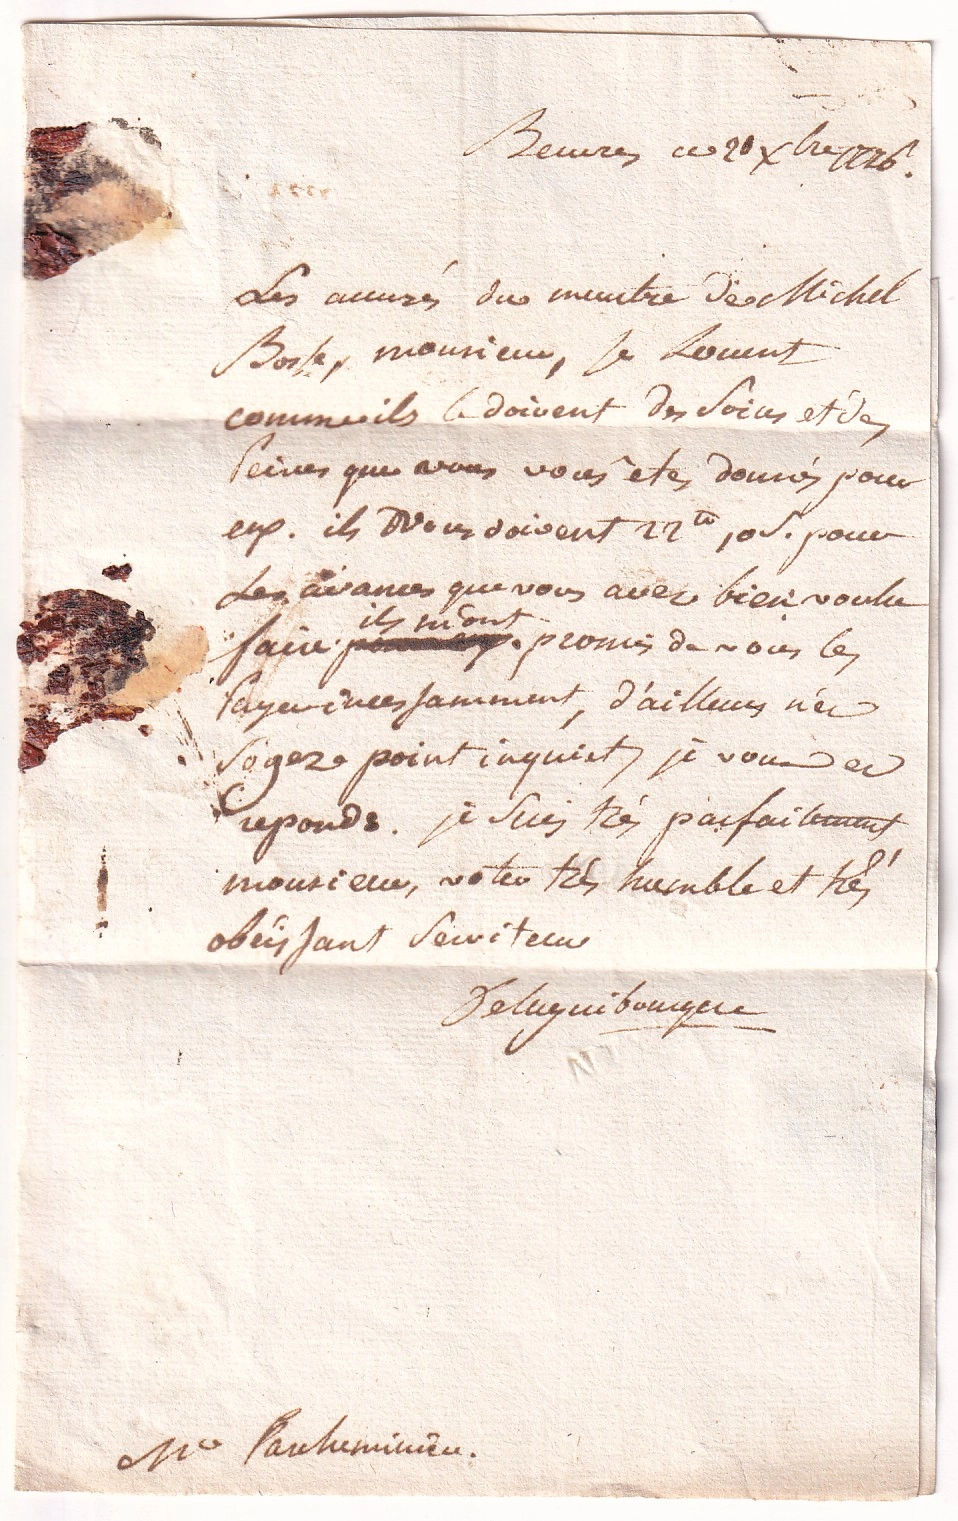 ce 20 Xbre 1776.
Les accusés du meurtre de Michel
monsieur, se Louent
comme ils le doivent des soins et des
peines que vous vous etes donnés pour
eux. ils vous doivent 22 tt 10 s. pour
Les avances que vous avez bien voulu
ils m'ont
faire. promis de vous les
payer incessamment, d'ailleurs n'en
soyez point inquiet, je vous en
reponds. je suis très parfaitement
monsieur, votre très humble et très
obeissant serviteur
Mr Parcheminier.